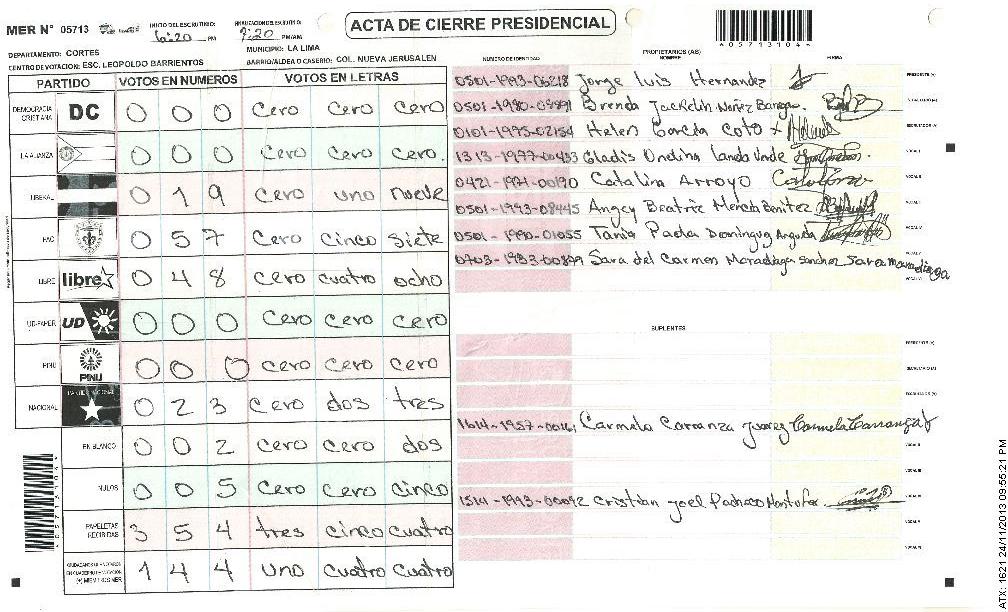 MER N° 05713
INICIO DEL ESCRUTINIO: 6:20 PM
FINALIZACION ESCRUTINIO: 9:20 PM/AM
ACTA DE CIERRE PRESIDENCIAL
4057131044
DEPARTAMENTO: CORTES
MUNICIPIO: LA LIMA
CENTRO DE VOTACION: ESC. LEOPOLDO BARRIENTOS
BARRIO/ALDEA O CASERIO: COL. NUEVA JERUSALEN
PARTIDO VOTOS EN NUMEROS VOTOS EN LETRAS
DEMOCRACIA CRISTIANA DC 0 0 0 Cero Cero Cero
LA ALIANZA 0 0 0 Cero Cero Cero.
LIBERAL 0 1 9 Cero uno nueve
PAC 0 5 7 Cero Cinco Siete
LIBRE libre 0 4 8 Cero cuatro ocho
UD-FAPER UD 0 0 0 Cero Cero Cero
PINU PINU 0 0 0 Cero Cero Cero
NACIONAL 0 2 3 Cero dos tres
EN BLANCO 0 0 2 Cero Cero dos
NULOS 0 0 5 Cero Cero Cinco
PAPELETAS RECIBIDAS 3 5 4 tres cinco cuatro
(+) MIEMBROS MER 1 4 4 uno cuatro cuatro
PROPIETARIOS (AS)
NUMERO DE IDENTIDAD NOMBRE FIRMA
0501-1993-06218 Jorge luis Hernandez
PRESIDENTE (A)
Brenda Jackelin Nuñez
0101-1975-02154 Helen Garcia Coto
1313-1977-00433 Gladis Ondina landa
0421-1971-00190 Catalina Arroyo
0501-1993-08445 Angey Beatriz Mercia Benitez
0501-1990-01055 Tania Paola Dominguez
0703-1983-00899 Sara del Carmen Moradiaga Sanchez Sara moradiaga
SUPLENTES
PRESIDENTE (A)
SECRETARIO (A)
ESCRUTADOR (A)
Carmela Carranza Juarez Carmela Carranza J
1514-1993-00092 Cristian Joel Pacheco
ATX: 1621 24/11/2013 09:55:21 PM